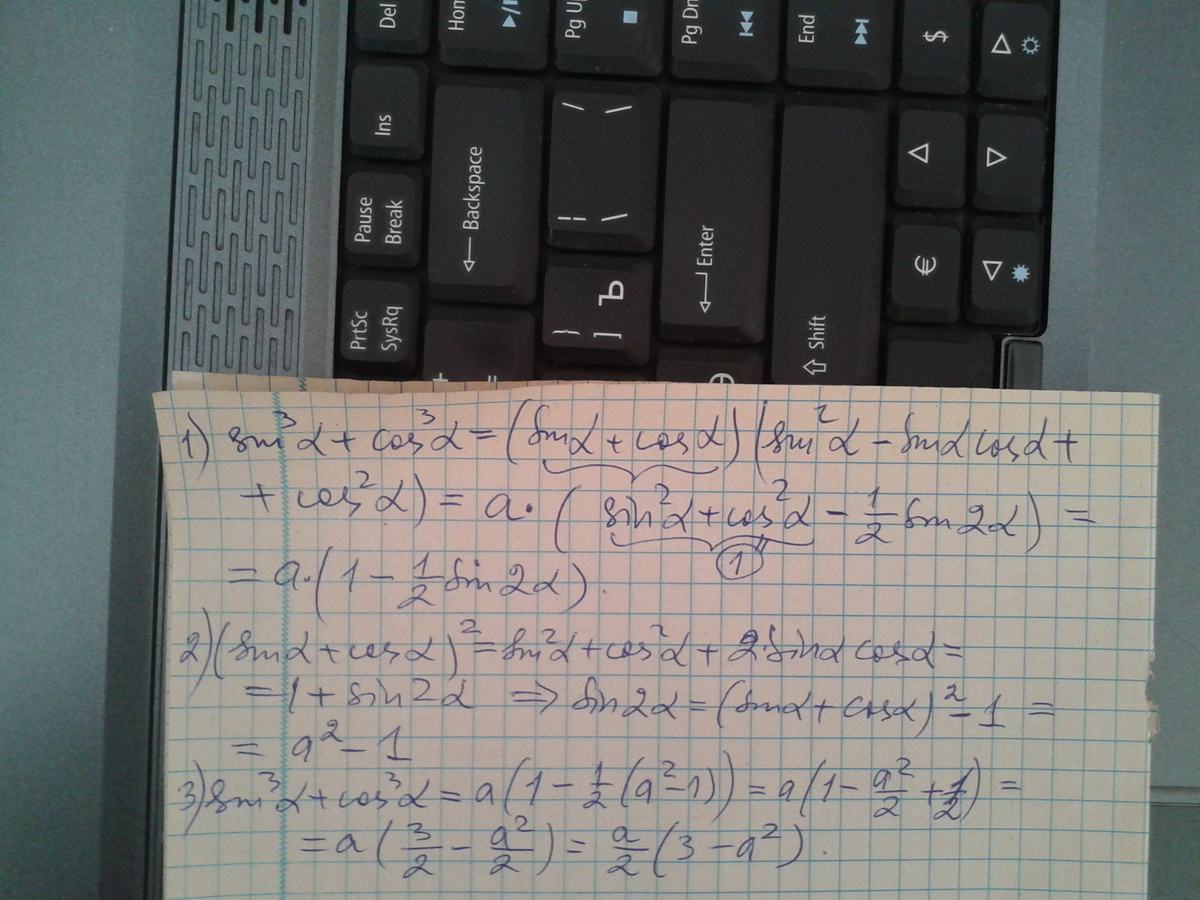 Del
Hom
Pg U
Pg Dn
End
$
Ins
Backspace
Pause
Break
Enter
€
PrtSc
SysRq
+
=
/ \
¦ \
} ] Ъ
Shift
1) sin³α + cos³α = (sinα + cosα)(sin²α - sinα cosα +
+ cos²α) = a·(sin²α + cos²α - 1/2 sin2α) =
1
= a·(1 - 1/2 sin2α).
2) (sinα + cosα)² = sin²α + cos²α + 2·sinα cosα =
= 1 + sin2α ⇒ sin2α = (sinα + cosα)² - 1 =
= a² - 1
3) sin³α + cos³α = a(1 - 1/2(a²-1)) = a(1 - a²/2 + 1/2) =
= a(3/2 - a²/2) = a/2(3 - a²).